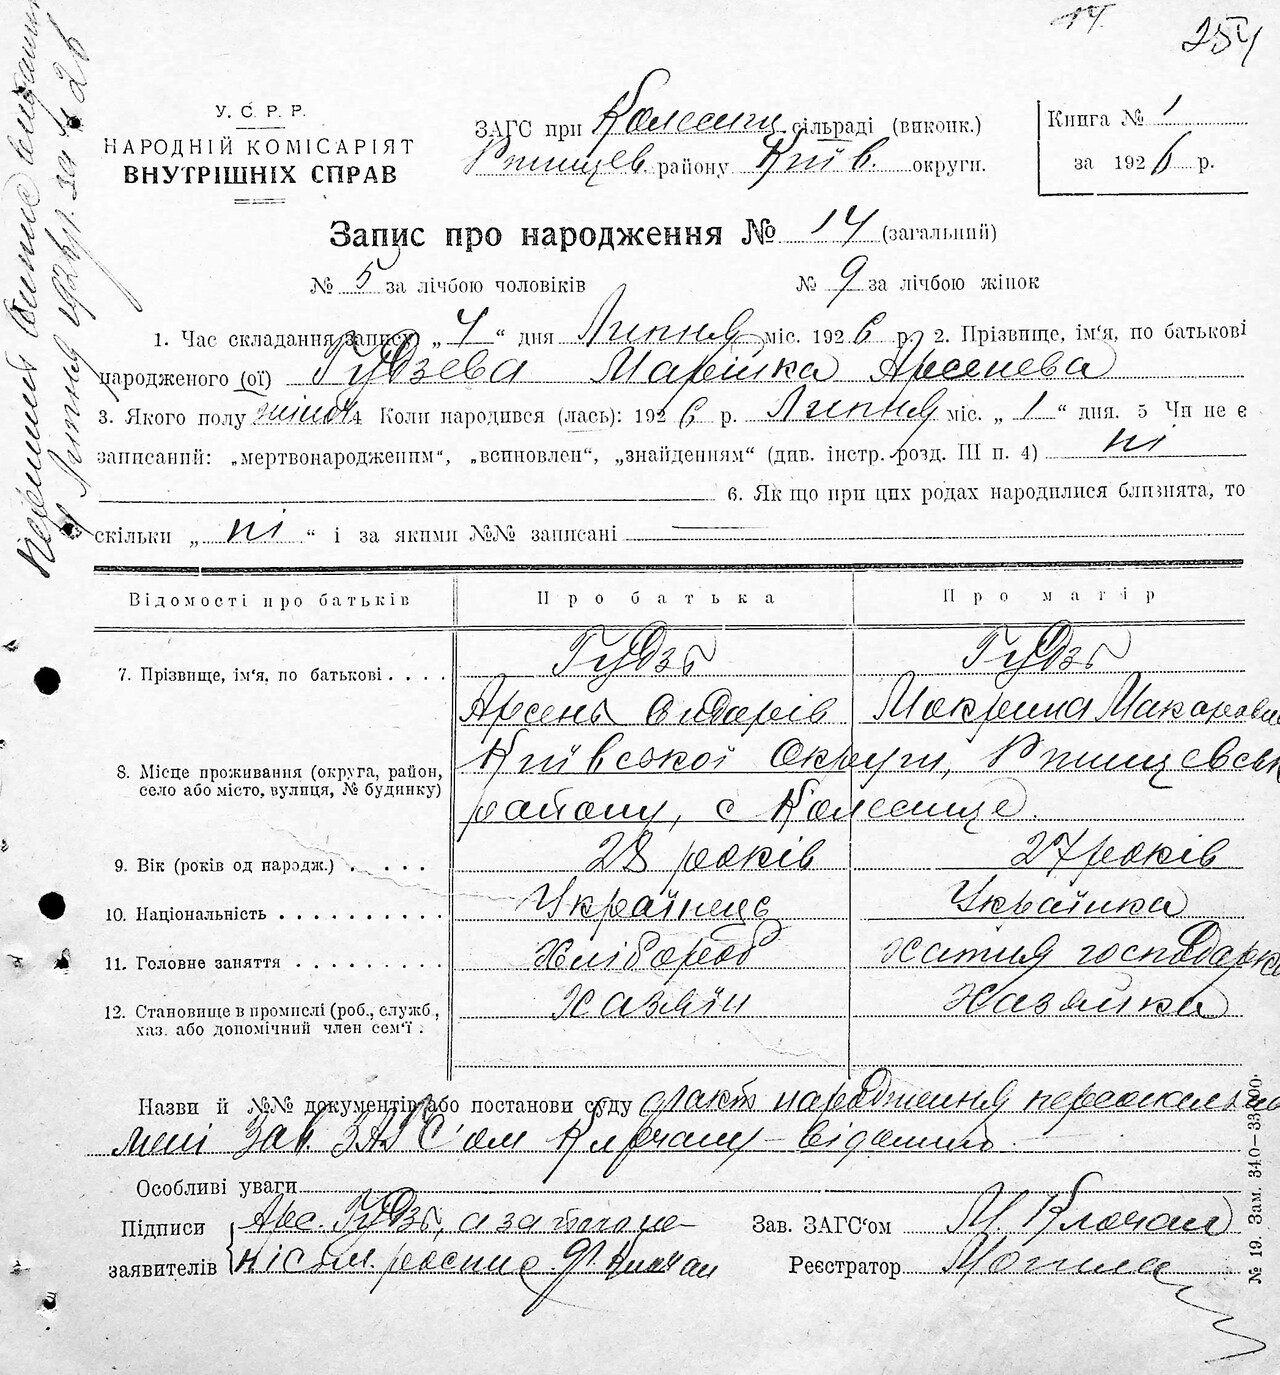 14.
254
У. С. Р. Р.
НАРОДНІЙ КОМІСАРІЯТ
ВНУТРІШНІХ СПРАВ
ЗАГС при сільраді (виконк.)
Ртищев. району Київ. округи.
Книга № 1
за 1926 р.
Запис про народження № 14 (загальний)
№ 5 за лічбою чоловіків № 9 за лічбою жінок
1. Час складання запису „ 4 “ дня Липня міс. 1926 р. 2. Прізвище, ім‘я, по батькові
народженого (ої) Гудзева Марійка Арсенева
3. Якого полу жіноч 4 Коли народився (лась): 1926 р. Липня міс. „ 1 “ дня. 5 Чи не є
записаний: „мертвонародженим“, „всиновлен“, „знайденням“ (див. інстр. розд. III п. 4) ні
6. Як що при цих родах народилися близнята, то
скільки „ ні “ і за якими №№ записані
Відомості про батьків Про батька Про матір
7. Прізвище, ім‘я, по батькові . . . . Гудзь Гудзь
Арсень Сидорів Макрина Макаровна
8. Місце проживання (округа, район, Київської Округи, Ртищевськ
село або місто, вулиця, № будинку) району, с
9. Вік (років од народж.) . . . . 28 років 27 років
10. Національність . . . . . . . . . . Українець Українка
11. Головне заняття . . . . . . . . . Хлібороб хатня господарка
12. Становище в промислі (роб., служб., Хазяїн Хазяйка
хаз. або допомічний член сем‘ї .
Назви й №№ документів або постанови суду факт народження
мені Зав. ЗАГС‘ом Ключану відомий
Особливі уваги
Підписи Арс. Гудзь, а за його не
заявителів
Зав. ЗАГС‘ом М. Ключан
Реєстратор
№ 19. Зам. 340—33.000.